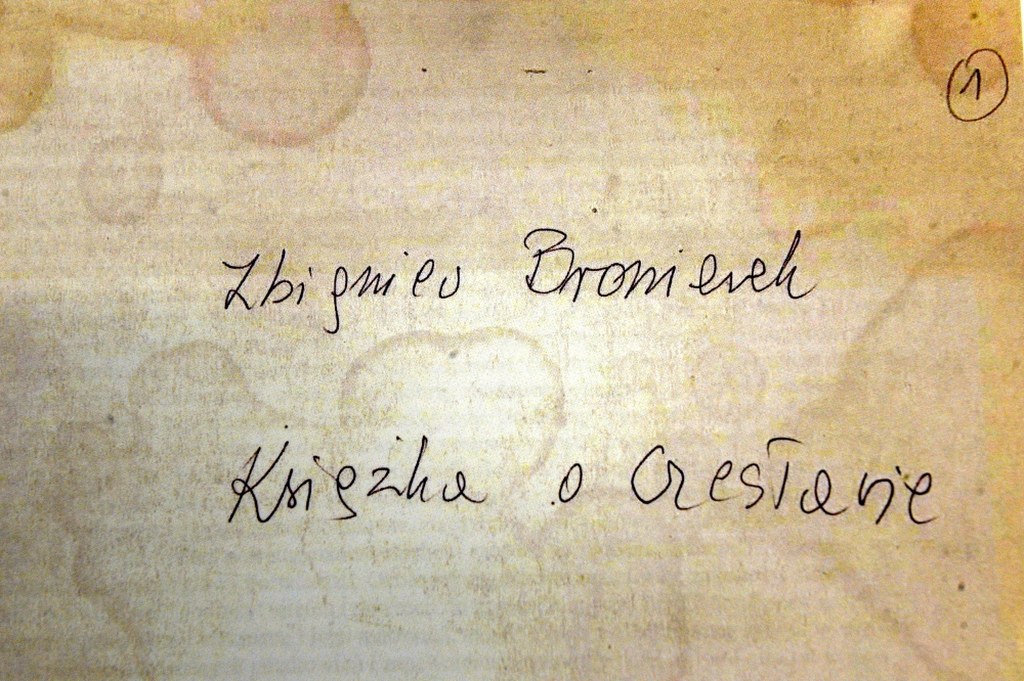 1
Zbigniew Bronierek
Książka o Czesławie